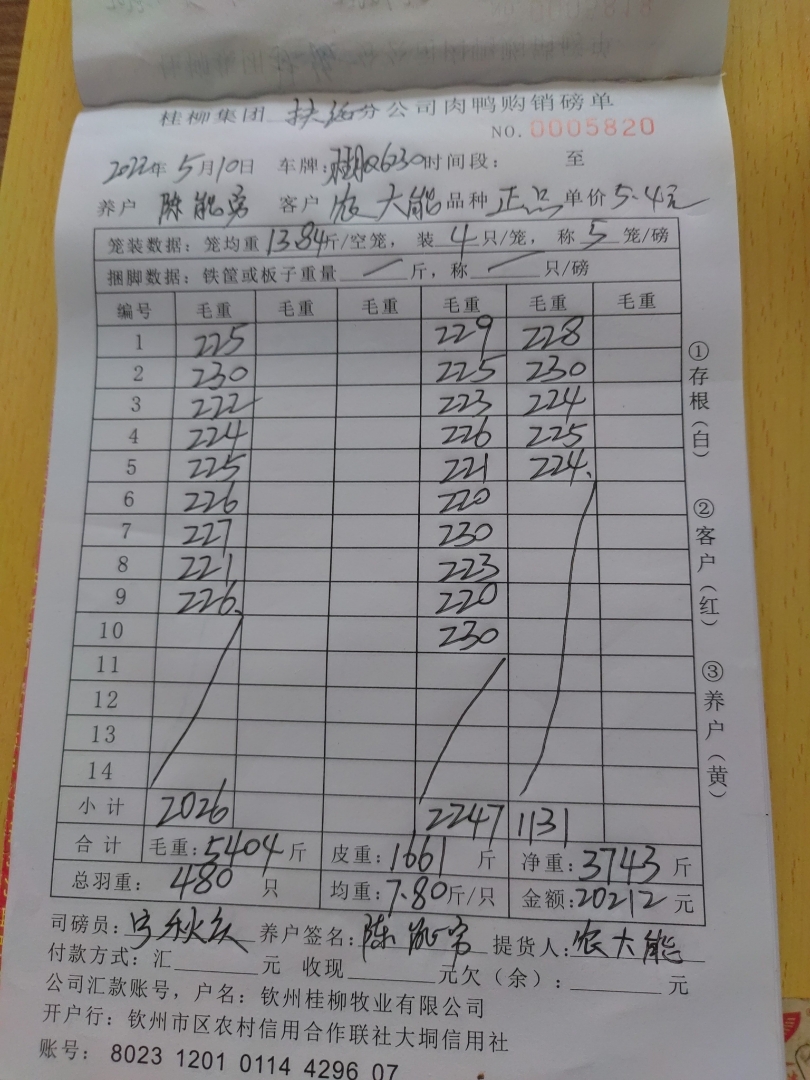 桂柳集团 扶绥分公司肉鸭购销磅单
NO. 0005820
2022年 5月10日 车牌: Q630 时间段: 至
养户 陈能 客户 农大能 品种 正品 单价 5.4元
笼装数据: 笼均重 13.84斤/空笼, 装 4 只/笼, 称 5 笼/磅
捆脚数据: 铁筐或板子重量 / 斤, 称 / 只/磅
编号 毛重 毛重 毛重 毛重 毛重 毛重
1 225 229 228
2 230 225 230
3 222 223 224
4 224 226 225
5 225 221 224
6 226 220
7 227 230
8 221 223
9 226 220
10 230
11
12
13
14
小计 2026 2247 1131
合计 毛重: 5404 斤 皮重: 1661 斤 净重: 3743 斤
总羽重: 480 只 均重: 7.80斤/只 金额: 20212 元
司磅员: 养户签名: 陈能 提货人: 农大能
付款方式: 汇 元 收现 元欠(余): 元
公司汇款账号, 户名: 钦州桂柳牧业有限公司
开户行: 钦州市区农村信用合作联社大垌信用社
账号: 8023 1201 0114 4296 07
①存根(白) ②客户(红) ③养户(黄)